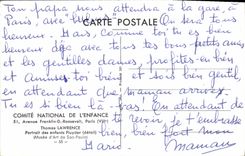 Ton papa nous attendra à la gare, à
Paris, avec
CARTE POSTALE
On sera tous
heureux. Mais, comme toi tu es bien
heureux déjà avec tous tes bons petits amis,
et les gentilles dames, profites-en bien
et amuses toi bien et sois bien gentil,
en attendant que maman arrive.
Tu es si bien là-bas! En attendant de
te revoir, je t'embrasse
bien, bien fort mon
Maman
COMITÉ NATIONAL DE L'ENFANCE
51, Avenue Franklin-D.-Roosevelt, Paris (VIIIe)
Thomas LAWRENCE
Portrait des enfants Pluyder (détail)
(Musée d'Art de San-Paulo)